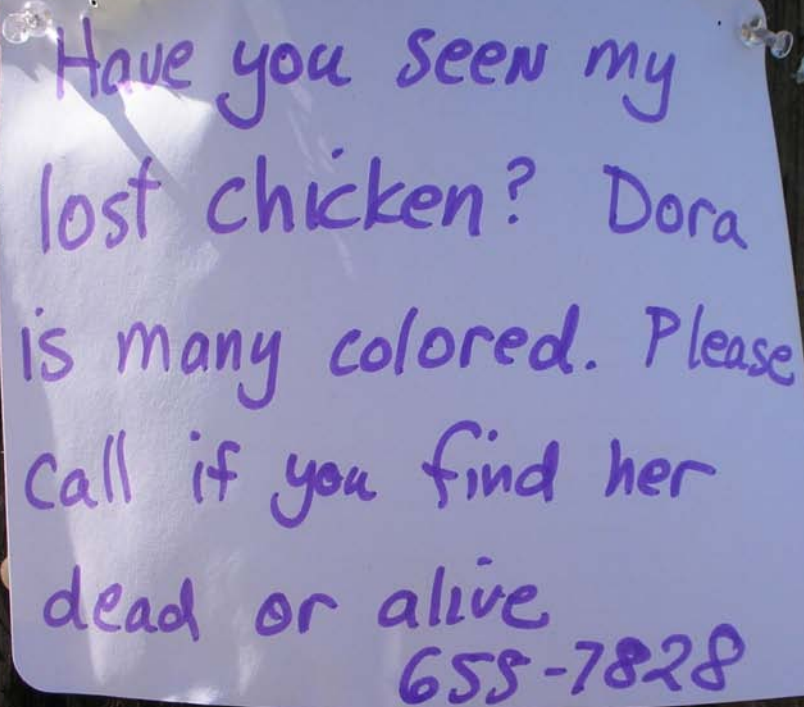 Have you seen my
lost chicken? Dora
is many colored. Please
call if you find her
dead or alive
655-7828